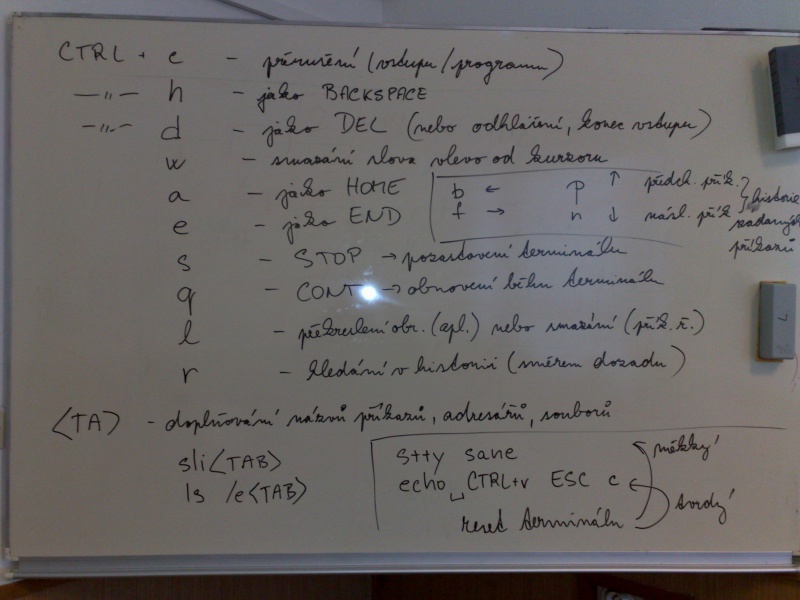 CTRL + c - přerušení (vstupu/programu)
—〃— h - jako BACKSPACE
—〃— d - jako DEL (nebo odhlášení, konec vstupu)
w - smazání slova vlevo od kurzoru
a - jako HOME
e - jako END
b ← p ↑ předch. přík. } historie
f → n ↓ násl. přík zadaných
příkazů
s - STOP → pozastavení terminálu
q - CONT → obnovení běhu terminálu
l - překreslení obr. (apl.) nebo smazání (přík. ř.)
r - hledání v historii (směrem dozadu)
<TA> - doplňování názvů příkazů, adresářů, souborů
sli<TAB>
ls /e<TAB>
stty sane měkký
echo ␣ CTRL+v ESC c tvrdý
reset terminálu